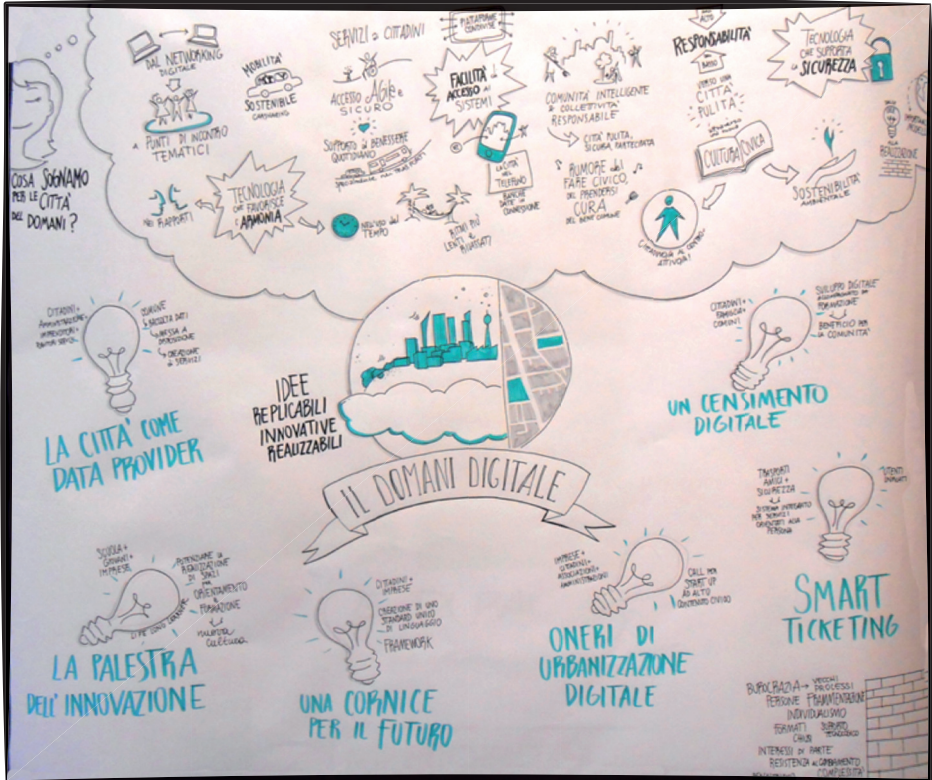 COSA SOGNAMO
PER LE CITTÀ
DEL DOMANI?
DAL NETWORKING
DIGITALE
A PUNTI DI INCONTRO
TEMATICI
MOBILITÀ
SOSTENIBILE
CARSHARING
SERVIZI a CITTADINI
ACCESSO AGILE e
SICURO
SUPPORTO al BENESSERE
QUOTIDIANO
PIATTAFORME
CONDIVISE
FACILITÀ di
ACCESSO ai
SISTEMI
LA CITTÀ
NEL
TELEFONO
BANCHE
DATI IN
CONNESSIONE
COMUNITÀ INTELLIGENTE
COLLETTIVITÀ
RESPONSABILE
CITTÀ PULITA,
SICURA, PARTECIPATA
RUMORE del
FARE CIVICO,
del PRENDERSI
CURA
DEL BENE COMUNE
ALTO
RESPONSABILITÀ
BASSO
VERSO UNA
CITTÀ
PULITA
CULTURA CIVICA
CITTADINO/A AL CENTRO
ATTIVO/A!
TECNOLOGIA
CHE SUPPORTA
la SICUREZZA
SOSTENIBILITÀ
AMBIENTALE
ALLA
REALIZZAZIONE
NEI RAPPORTI
TECNOLOGIA
CHE FAVORISCE
L'ARMONIA
NELL'USO del
TEMPO
RITMI PIÙ
LENTI e
RILASSATI
CITTADINI+
AMMINISTRAZIONE+
IMPRENDITORI+
FORNITORI SERVIZI
UNIONE
e RACCOLTA DATI
MESSA A
DISPOSIZIONE
CREAZIONE
di SERVIZI
LA CITTÀ COME
DATA PROVIDER
IDEE
REPLICABILI
INNOVATIVE
REALIZZABILI
IL DOMANI DIGITALE
CITTADINI+
FAMIGLIA+
COMUNI
SVILUPPO DIGITALE
ACCOMPAGNATO DA
FORMAZIONE
BENEFICIO PER
LA COMUNITÀ
UN CENSIMENTO
DIGITALE
TRASPORTI
AMICI+
SICUREZZA
SISTEMA INTEGRATO
PER SERVIZI
ORIENTATI ALLA
PERSONA
UTENTI
SMART
TICKETING
SCUOLA+
GIOVANI+
IMPRESE
POTENZIARE la
REALIZZAZIONE
DI SPAZI
PER
ORIENTAMENTO
e
FORMAZIONE
NUOVA
CULTURA
LA PALESTRA
DELL'INNOVAZIONE
CITTADINI+
IMPRESE
CREAZIONE DI UNO
STANDARD UNICO
DI LINGUAGGIO
FRAMEWORK
UNA CORNICE
PER IL FUTURO
IMPRESE+
CITTADINI+
ASSOCIAZIONI+
AMMINISTRAZIONI
CALL PER
START UP
AD ALTO
CONTENUTO CIVICO
ONERI DI
URBANIZZAZIONE
DIGITALE
BUROCRAZIA → VECCHI
PROCESSI
PERSONE FRAMMENTAZIONE
INDIVIDUALISMO
FORMATI SUPPORTO
CHIUSI TECNOLOGICO
INTERESSI DI PARTE
RESISTENZA al CAMBIAMENTO
COMPLESSITÀ